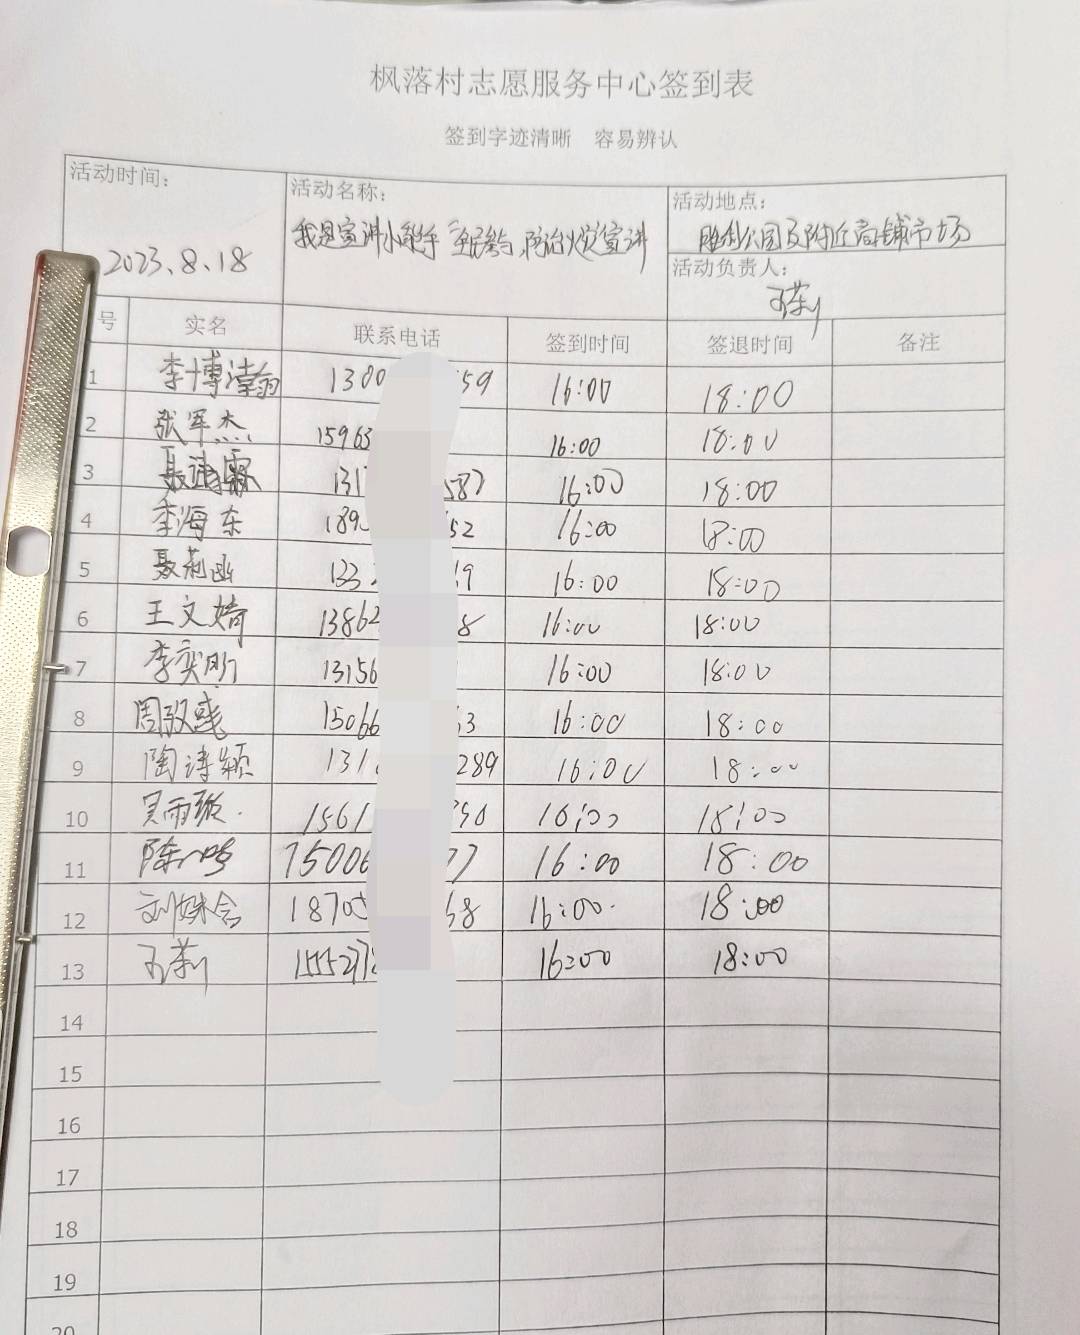 枫落村志愿服务中心签到表
签到字迹清晰 容易辨认
活动时间: 2023.8.18
活动名称: 我是宣讲小能手
活动地点: 胜利公园及附近商铺市场
活动负责人:
号 实名 联系电话 签到时间 签退时间 备注
1 李博 1380 59 16:00 18:00
2 张军杰 15963 16:00 18:00
3 聂诗霖 131 587 16:00 18:00
4 李海东 189 52 16:00 18:00
5 聂莉函 133 9 16:00 18:00
6 王文婧 13862 8 16:00 18:00
7 李奕彤 13156 16:00 18:00
8 周 15066 53 16:00 18:00
9 陶诗颖 131 289 16:00 18:00
10 吴雨璇 1561 50 16:00 18:00
11 陈 15006 77 16:00 18:00
12 刘姝含 18705 58 16:00 18:00
13 1555272 16:00 18:00
14
15
16
17
18
19
20